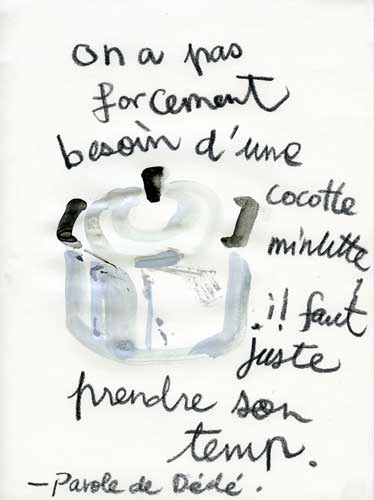 on a pas
forcement
besoin d'une
cocotte
minutte,
il faut
juste
prendre son
temp.
- Parole de Dédé.